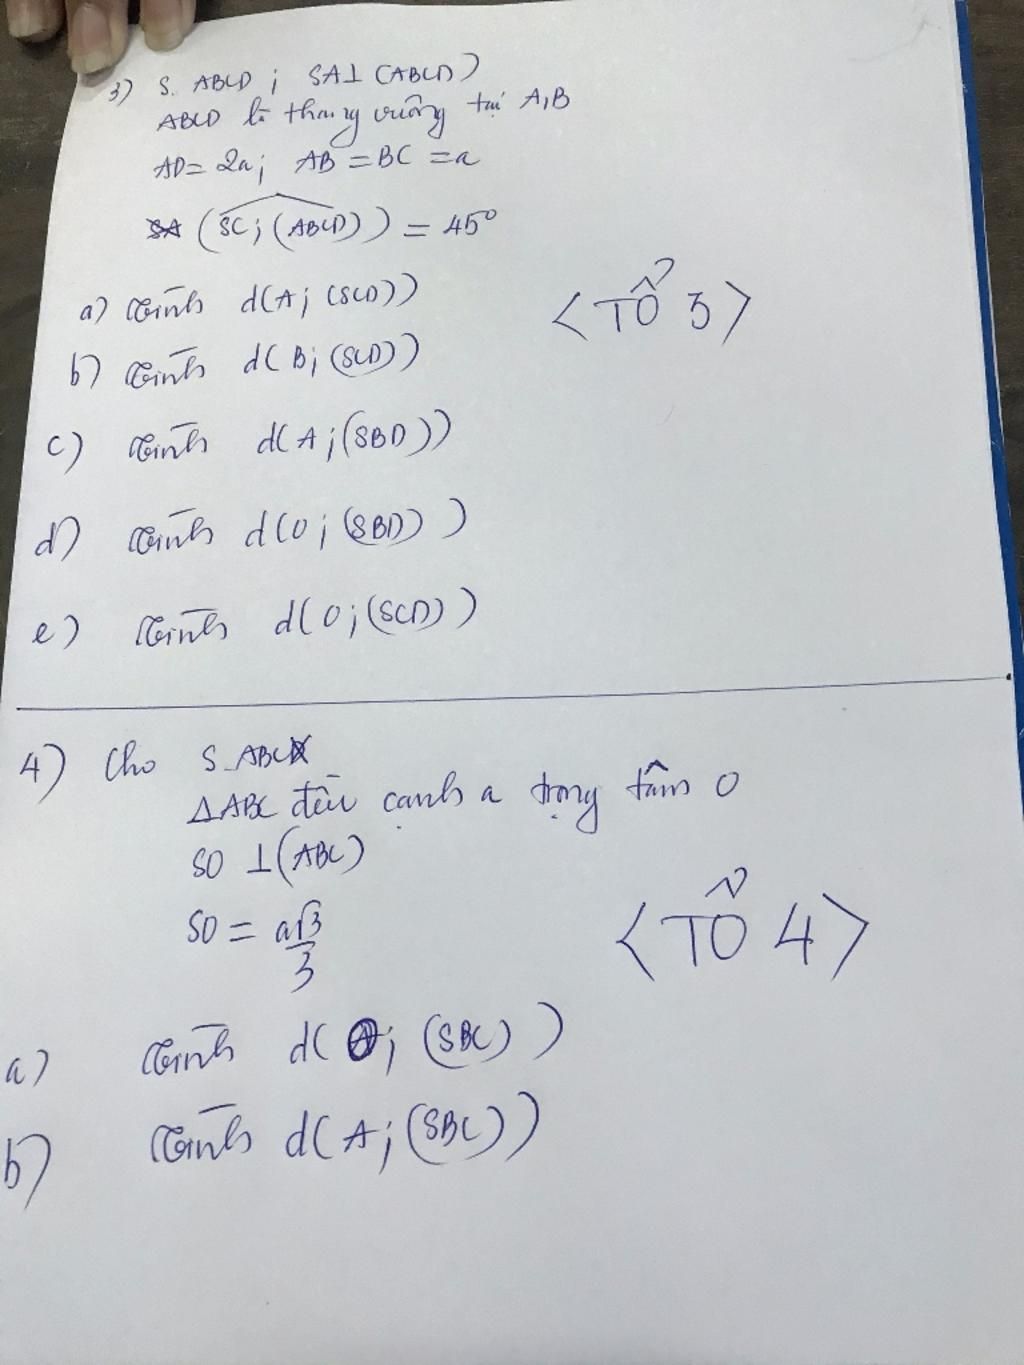 3) S. ABCD ; SA⊥ (ABCD)
ABCD là thang vuông tại A,B
AD= 2a; AB = BC = a
(SC; (ABCD)) = 45°
a) Tính d(A; (SCD))
<TỔ 3>
b) Tính d(B; (SCD))
c) Tính d(A;(SBD))
d) Tính d(O; (SBD))
e) Tính d(O; (SCD))
4) Cho S.ABC
ΔABC đều cạnh a trọng tâm O
SO ⊥(ABC)
SO = a√3/3
<TỔ 4>
a) Tính d(O; (SBC))
b) Tính d(A; (SBC))